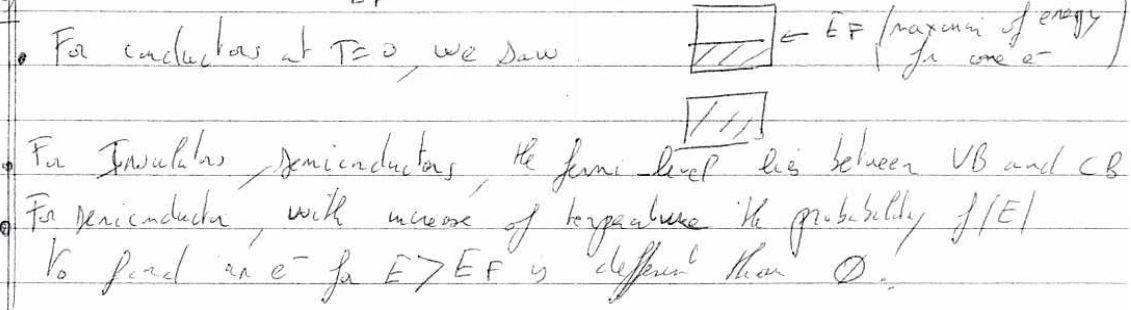 EF
. For conductors at T=0, we saw ← EF (maximum of energy
for one e-)
. For Insulators, semiconductors, the fermi-level lies between VB and CB
. For semiconductor, with increase of temperature the probability f(E)
to find an e- for E>EF is different than 0.